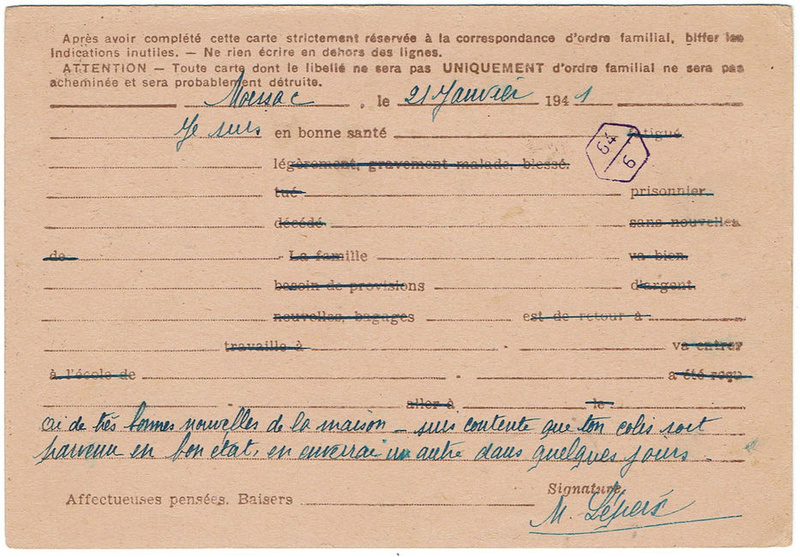 Après avoir complété cette carte strictement réservée à la correspondance d'ordre familial, biffer les
indications inutiles. — Ne rien écrire en dehors des lignes.
ATTENTION — Toute carte dont le libellé ne sera pas UNIQUEMENT d'ordre familial ne sera pas
acheminée et sera probablement détruite.
Moissac, le 21 Janvier 1941
Je suis en bonne santé fatigué
légèrement, gravement malade, blessé.
64
6
tué prisonnier
décédé sans nouvelles
de La famille va bien.
besoin de provisions d'argent.
nouvelles, bagages est de retour à
travaille à va entrer
à l'école de a été reçu
aller à le
ai de très bonnes nouvelles de la maison — suis contente que ton colis soit
parvenu en bon état, en enverrai un autre dans quelques jours.
Affectueuses pensées. Baisers Signature.
M. Lépers